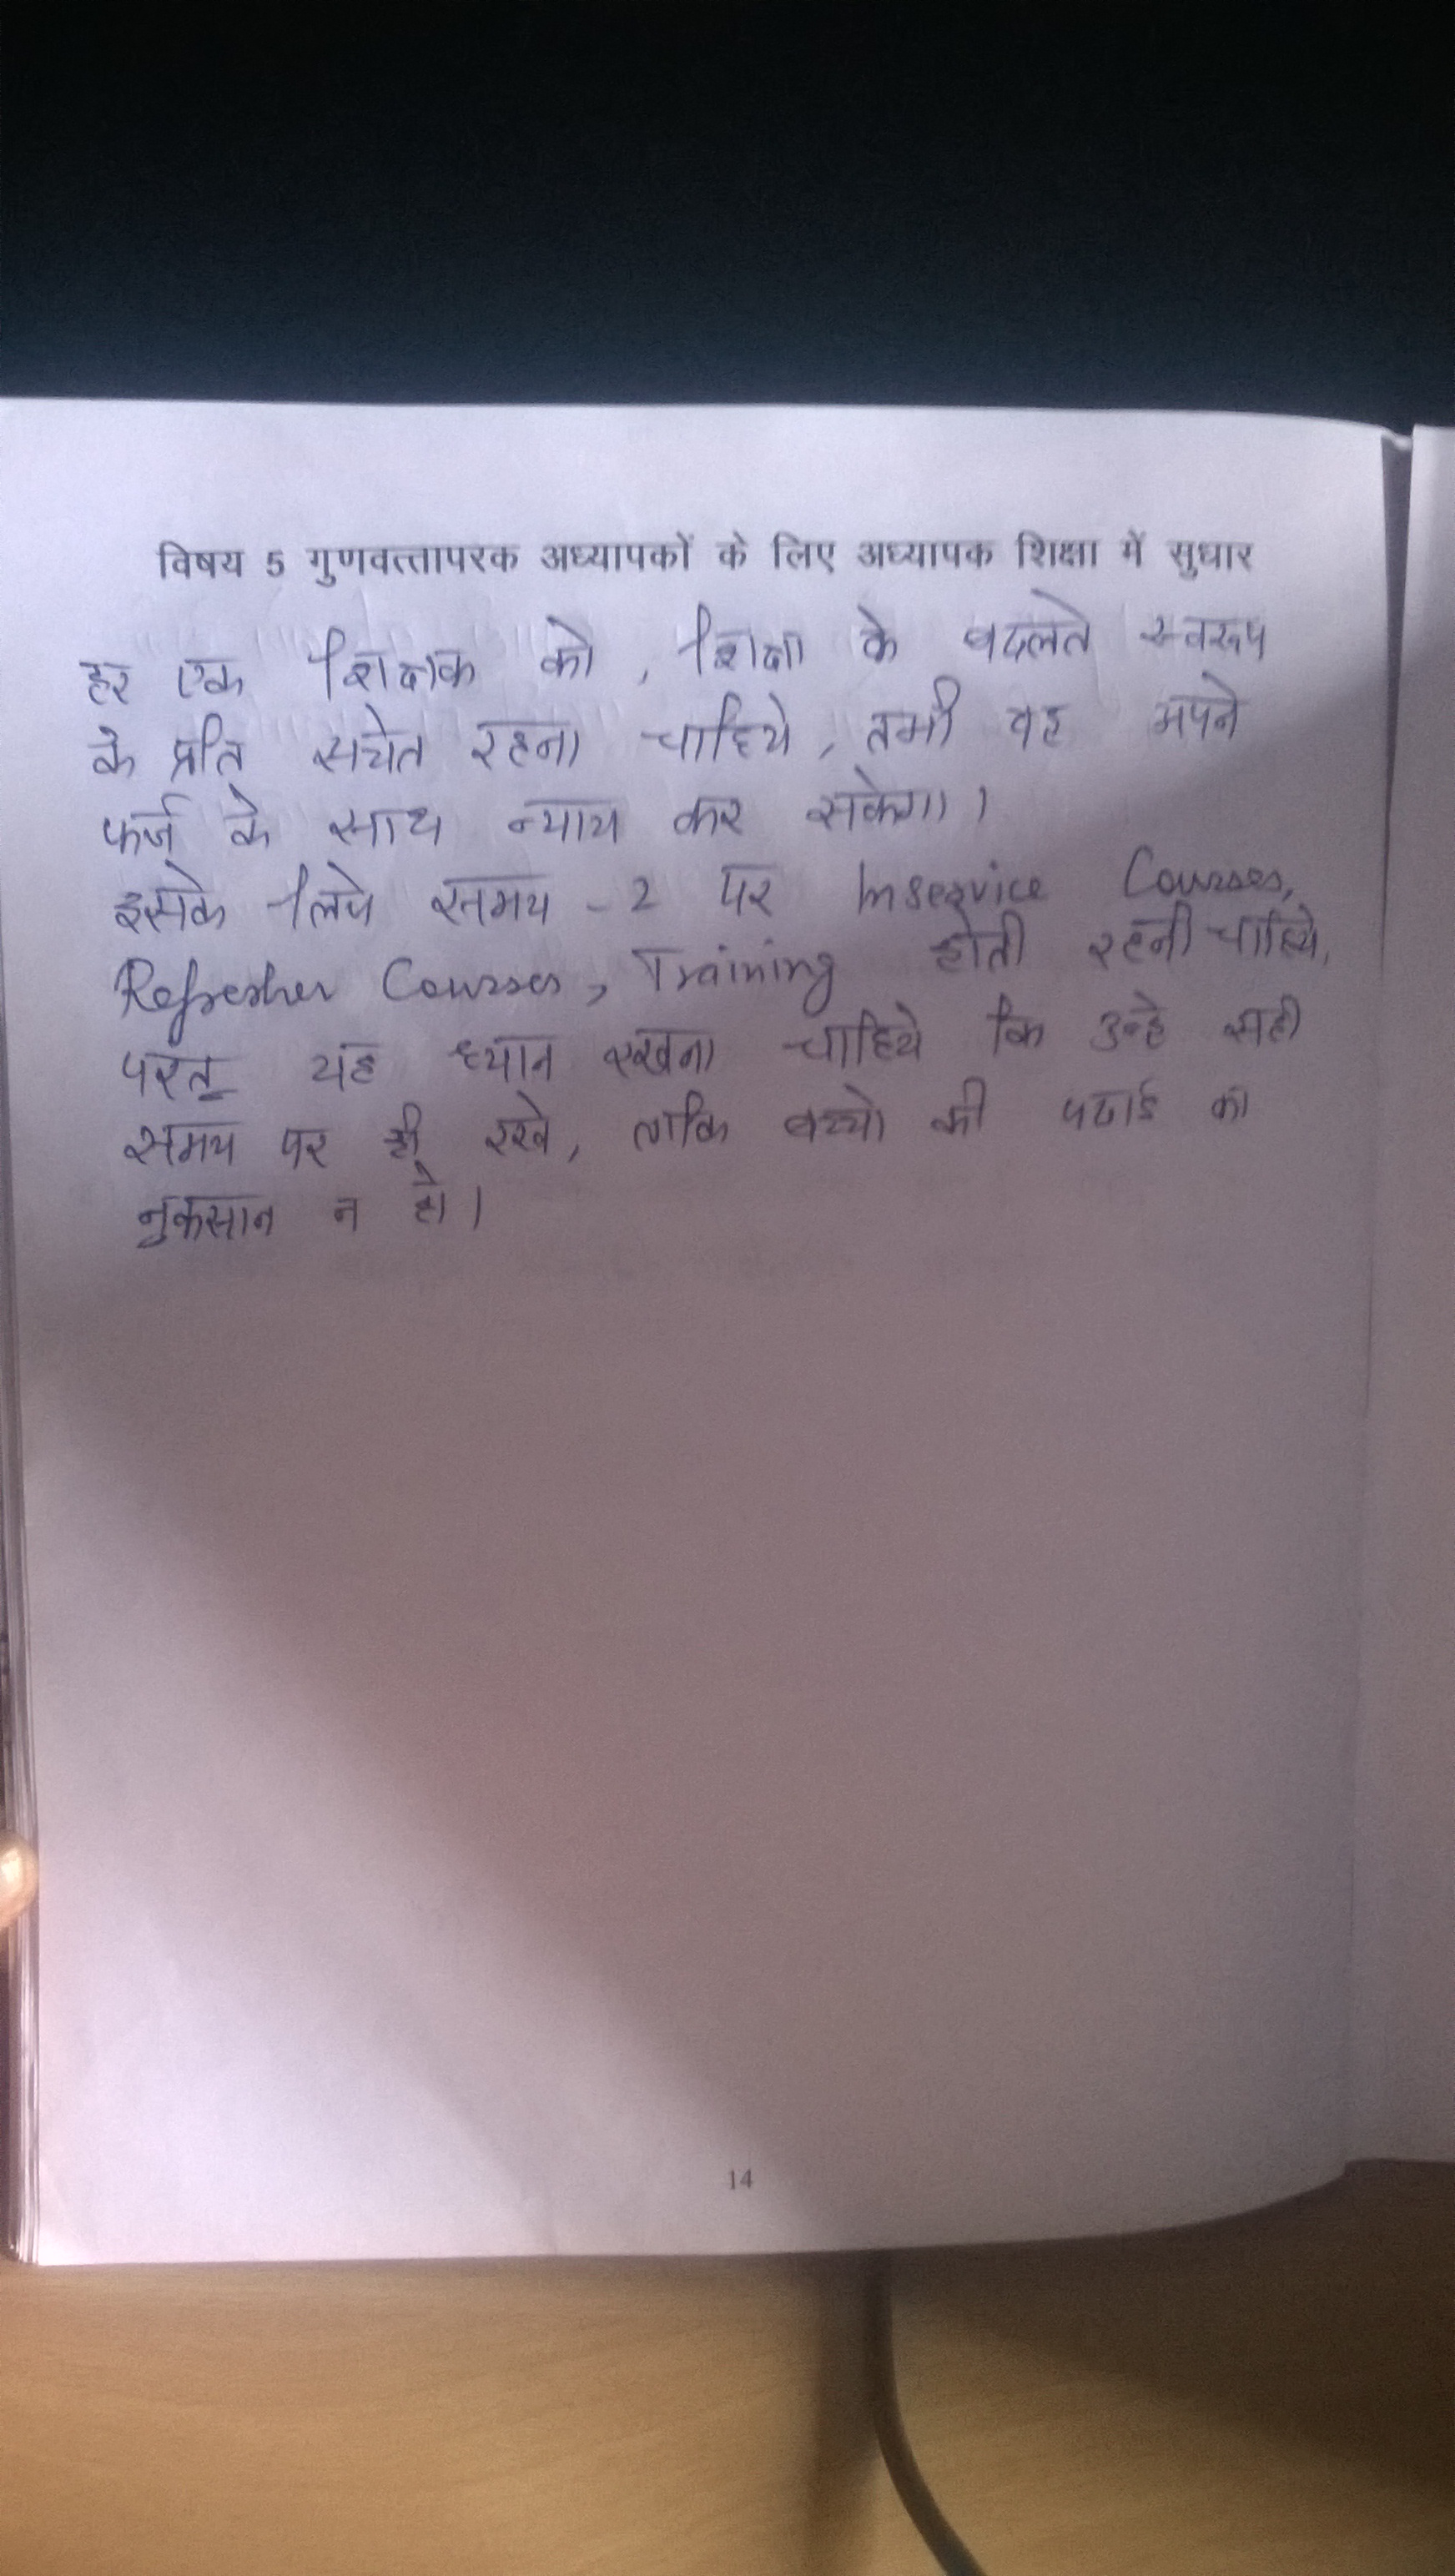 विषय 5 गुणवत्तापरक अध्यापकों के लिए अध्यापक शिक्षा में सुधार
हर एक शिक्षक को, शिक्षा के बदलते स्वरूप
के प्रति सचेत रहना चाहिये, तभी वह अपने
फर्ज़ के साथ न्याय कर सकेगा।
इसके लिये समय -2 पर Inservice Courses,
Refresher Courses, Training होती रहनी चाहिये,
परंतु यह ध्यान रखना चाहिये कि उन्हे सही
समय पर ही रखे, ताकि बच्चो की पढाई का
नुकसान न हो।
14